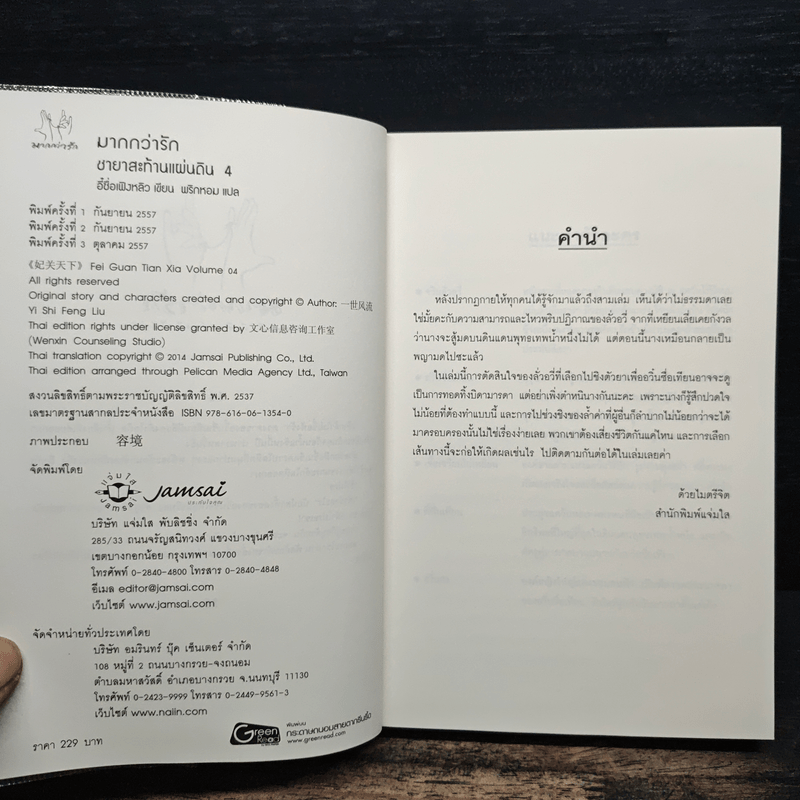 มากกว่ารัก
มากกว่ารัก
ชายาสะท้านแผ่นดิน 4
อี้ซื่อเฟิงหลิว เขียน พริกหอม แปล
พิมพ์ครั้งที่ 1 กันยายน 2557
พิมพ์ครั้งที่ 2 กันยายน 2557
พิมพ์ครั้งที่ 3 ตุลาคม 2557
《妃关天下》 Fei Guan Tian Xia Volume 04
All rights reserved
Original story and characters created and copyright © Author: 一世风流
Yi Shi Feng Liu
Thai edition rights under license granted by 文心信息咨询工作室
(Wenxin Counseling Studio)
Thai translation copyright © 2014 Jamsai Publishing Co., Ltd.
Thai edition arranged through Pelican Media Agency Ltd., Taiwan
สงวนลิขสิทธิ์ตามพระราชบัญญัติลิขสิทธิ์ พ.ศ. 2537
เลขมาตรฐานสากลประจำหนังสือ ISBN 978-616-06-1354-0
ภาพประกอบ 容境
จัดพิมพ์โดย
แจ่มใส
Jamsai
Jamsai
บริษัท แจ่มใส พับลิชชิ่ง จำกัด
285/33 ถนนจรัญสนิทวงศ์ แขวงบางขุนศรี
เขตบางกอกน้อย กรุงเทพฯ 10700
โทรศัพท์ 0-2840-4800 โทรสาร 0-2840-4848
อีเมล editor@jamsai.com
เว็บไซต์ www.jamsai.com
จัดจำหน่ายทั่วประเทศโดย
บริษัท อมรินทร์ บุ๊ค เซ็นเตอร์ จำกัด
108 หมู่ที่ 2 ถนนบางกรวย-จงถนอม
ตำบลมหาสวัสดิ์ อำเภอบางกรวย จ.นนทบุรี 11130
โทรศัพท์ 0-2423-9999 โทรสาร 0-2449-9561-3
เว็บไซต์ www.naiin.com
ราคา 229 บาท
Green Read
พิมพ์บน
กระดาษถนอมสายตากรีนรี้ด
www.greenread.com
คำนำ
หลังปรากฏกายให้ทุกคนได้รู้จักมาแล้วถึงสามเล่ม เห็นได้ว่าไม่ธรรมดาเลย
ใช่มั้ยคะกับความสามารถและไหวพริบปฏิภาณของลั่วอวี่ จากที่เหยียนเลี่ยเคยกังวล
ว่านางจะสู้มดบนดินแดนพุทธเทพน้ำหนึ่งไม่ได้ แต่ตอนนี้นางเหมือนกลายเป็น
พญามดไปซะแล้ว
ในเล่มนี้การตัดสินใจของลั่วอวี่ที่เลือกไปชิงตัวยาเพื่ออวิ๋นซื่อเทียนอาจจะดู
เป็นการทอดทิ้งบิดามารดา แต่อย่าเพิ่งตำหนินางกันนะคะ เพราะนางก็รู้สึกปวดใจ
ไม่น้อยที่ต้องทำแบบนี้ และการไปช่วงชิงของล้ำค่าที่ผู้อื่นก็ลำบากไม่น้อยกว่าจะได้
มาครอบครองนั้นไม่ใช่เรื่องง่ายเลย พวกเขาต้องเสี่ยงชีวิตกันแค่ไหน และการเลือก
เส้นทางนี้จะก่อให้เกิดผลเช่นไร ไปติดตามกันต่อได้ในเล่มเลยค่า
ด้วยไมตรีจิต
สำนักพิมพ์แจ่มใส